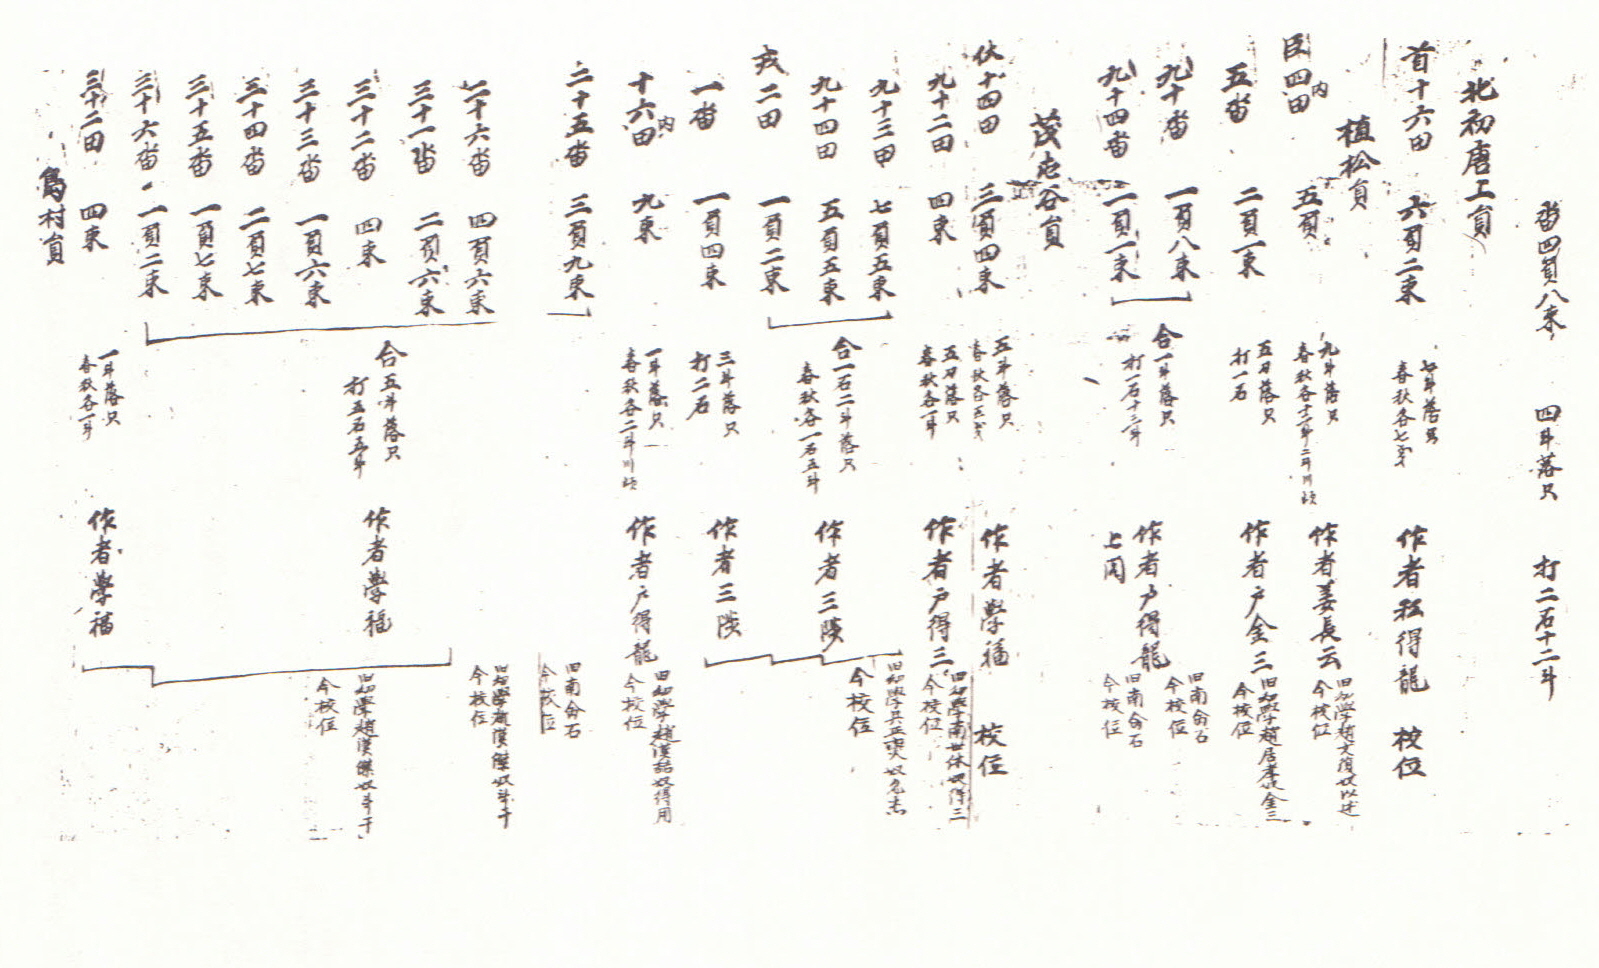 畓四負八束 四斗落只 打二石十二斗
北初唐上員
首十六田 六負二束 七斗落只 春秋各七斗 作者 得龍 校位
植松員
臣四田內 五負 九斗落只 春秋各十二斗 作者姜長云 今校位
五畓 二負一束 五刀落只 打一石 作者戶金三 旧幼學趙居孝奴金三 今校位
九十畓 一負八束
九十四畓 二負一束
合一斗落只 打一石十二斗 作者戶得龍 旧南余石 今校位
上同 旧南余石 今校位
茂 谷員
伏十四田 三負四束 五斗落只 作者學福 校位
九十二田 四束 五刀落只 春秋各一斗 作者戶得三 旧幼學南世休奴得三 今校位
九十三田 七負五束
九十四田 五負五束
戎二田 一負二束
合一石二斗落只 春秋各一石五斗 作者三陟
一畓 一負四束 三斗落只 打二石 作者三陟
今校位
十六田內 九束 一斗落只 春秋各二斗 作者戶得龍 旧幼學趙漢喆奴得用 今校位
二十五畓 三負九束 旧南余石 今校位
二十六畓 四負六束 旧幼學趙漢傑奴斗千 今校位
三十一畓 二負六束
三十二畓 四束
三十三畓 一負六束
三十四畓 二負七束
三十五畓 一負七束
三十六畓 一負二束
合五斗落只 打五石五斗 作者學福 旧幼學趙漢傑奴斗千 今校位
三十二田 四束 一斗落只 春秋各一斗 作者學福
島村員